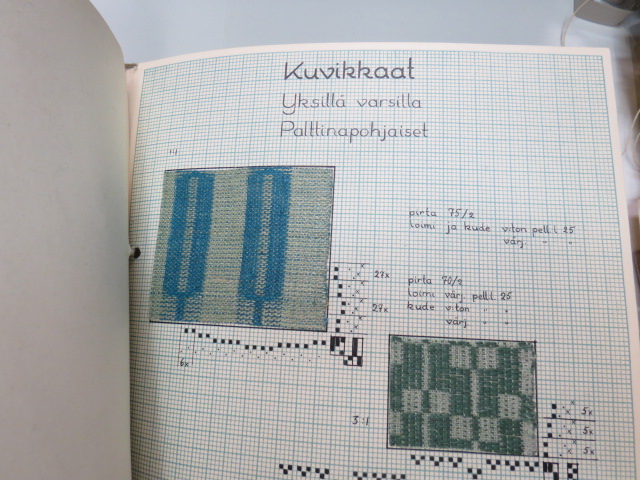 Kuvikkaat
Yksillä varsilla
Palttinapohjaiset
14
pirta 75/2
loimi ja kude viton pell.l. 25
värj. " "
27x
29x
pirta 70/2
loimi värj. pell.l. 25
kude viton " "
värj " "
6x
3:1
5x
5x
5x